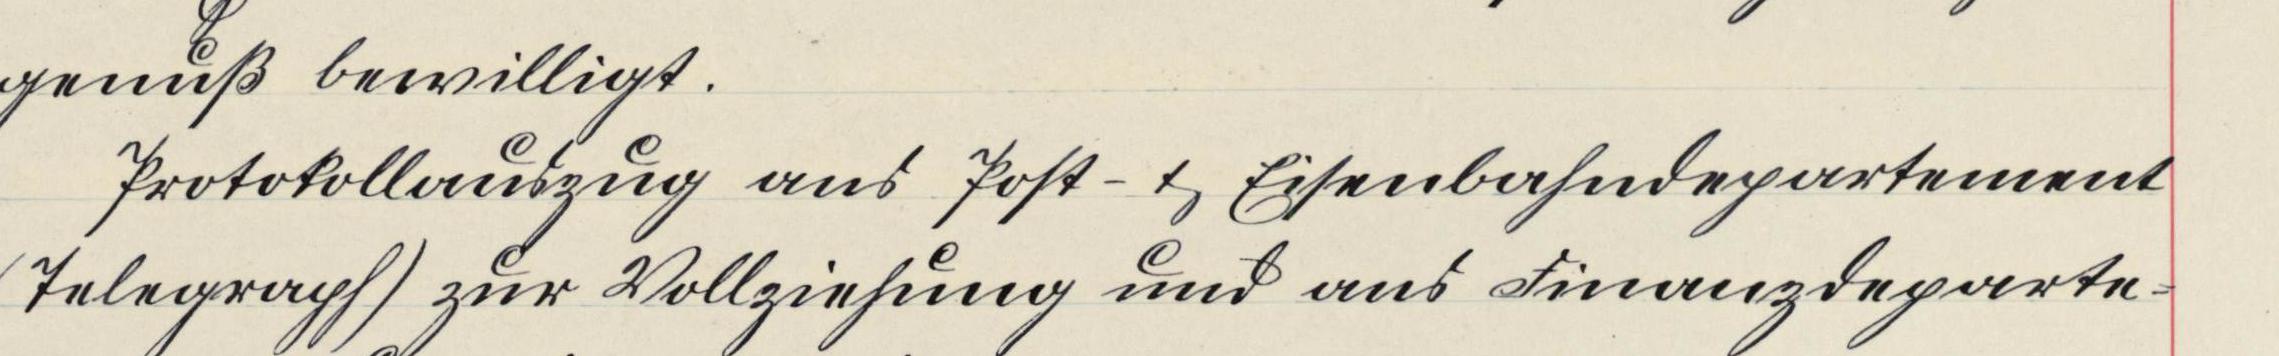 genuß bewilligt.
Protokollauszug ans Post- & Eisenbahndepartement
(Telegraph) zur Vollziehung und ans Finanzdeparte=